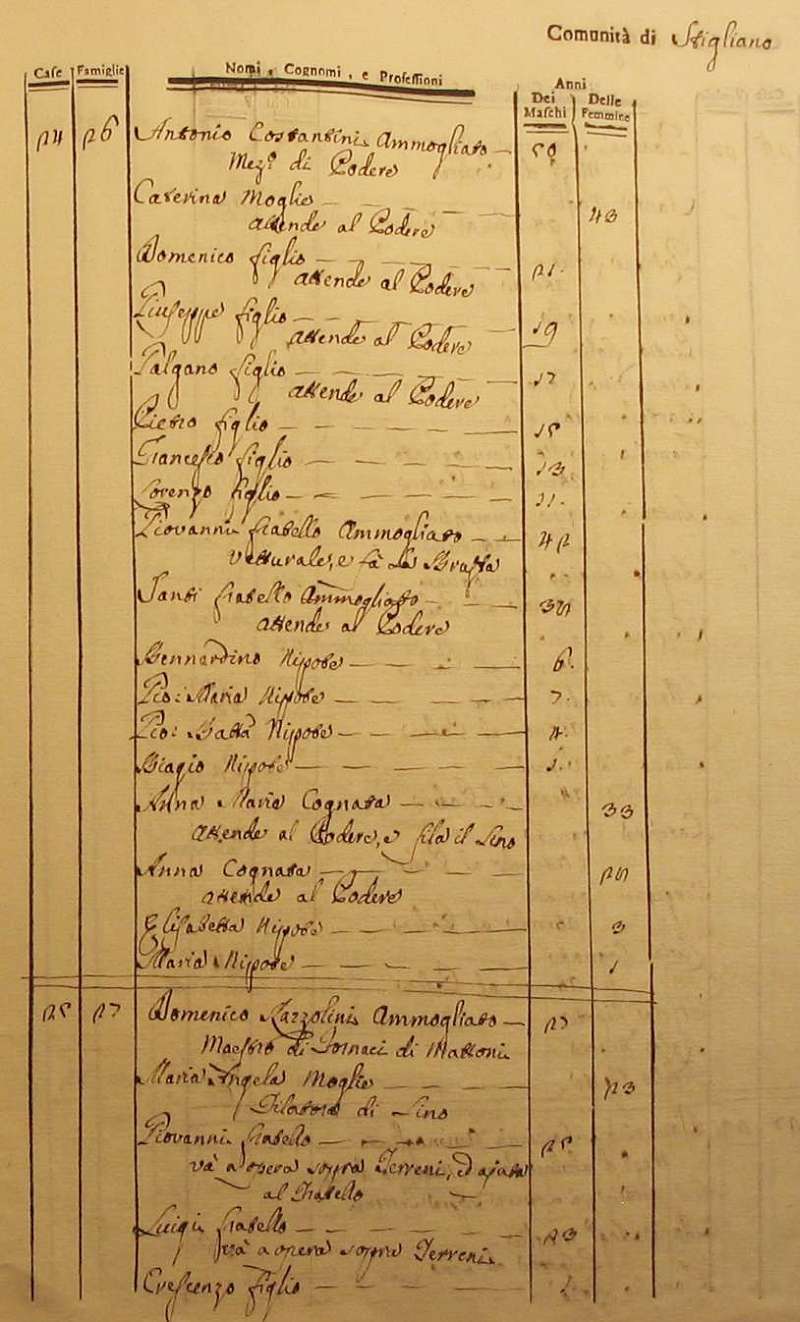 Comunità di Stigliano
Case Famiglie Nomi, Cognomi, e Professioni Anni
Dei Maschi Delle Femmine
24 26 Antonio Costantini Ammogliato 50
Mezo di Podere
Caterina Moglie 43
attende al Podere
Domenico figlio 21
attende al Podere
Giuseppe figlio 19
attende al Podere
Galgano figlio 17
attende al Podere
Pietro figlio 15
Francesco figlio 13
Lorenzo figlio 11
Giovanni fratello Ammogliato 42
Vetturale, e fà la Grascia
Santi fratello Ammogliato
attende al Podere
Bernardino Nipote 6
Gio: Maria Nipote 7
Gio: Batta Nipote 4
Biagio Nipote 1
Anna Maria Cognata 33
attende al Podere, e fila il Lino
Anna Cognata
attende al Podere
Elisabetta Nipote 3
Maria Nipote 1
25 27 Domenico Mazzolini Ammogliato 27
Maestro di Fornaci di Mattoni
Maria Angela Moglie 23
Filatora di Lino
Giovanni fratello 25
và a opera sopra Terreni, ed ajuta
al Fratello
Luigi fratello 23
và a opera sopra Terreni
Crescenzo figlio 1